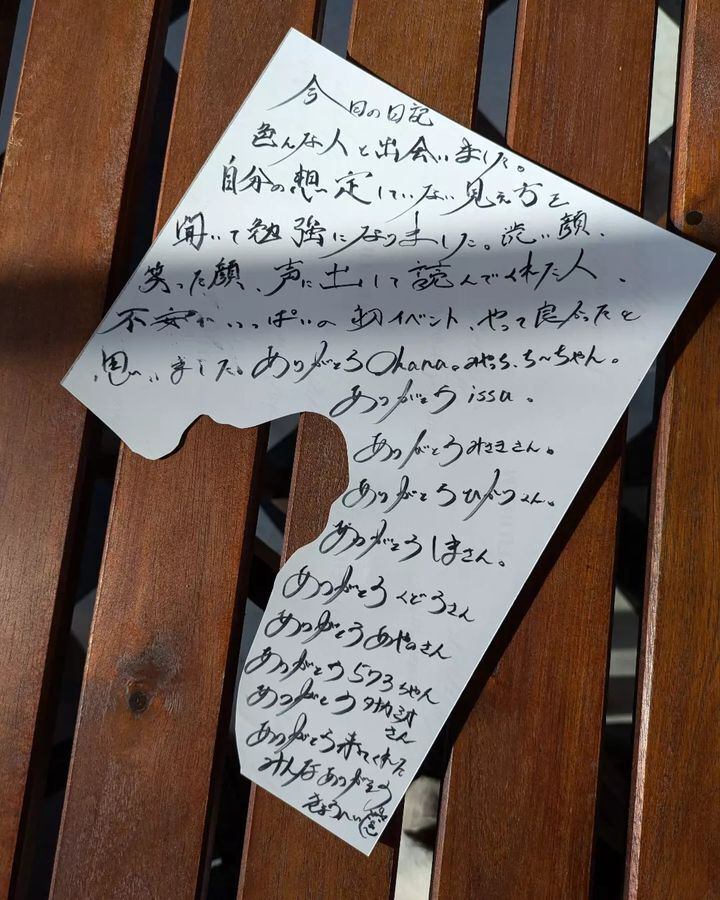 今日の日記
色んな人と出会いました。
自分の想定していない見え方を
聞いて勉強になりました。渋い顔、
笑った顔、声に出して読んでくれた人、
不安がいっぱいの初イベント、やって良かったと
思いました。ありがとうOhana。みっち、ち〜ちゃん。
ありがとうissa。
ありがとうみさきさん。
ありがとう
ありがとうしまさん。
ありがとうくどうさん
ありがとうあやのさん
ありがとう573ちゃん
ありがとう
さん
ありがとう来てくれた
みんなありがとう
きょうへい